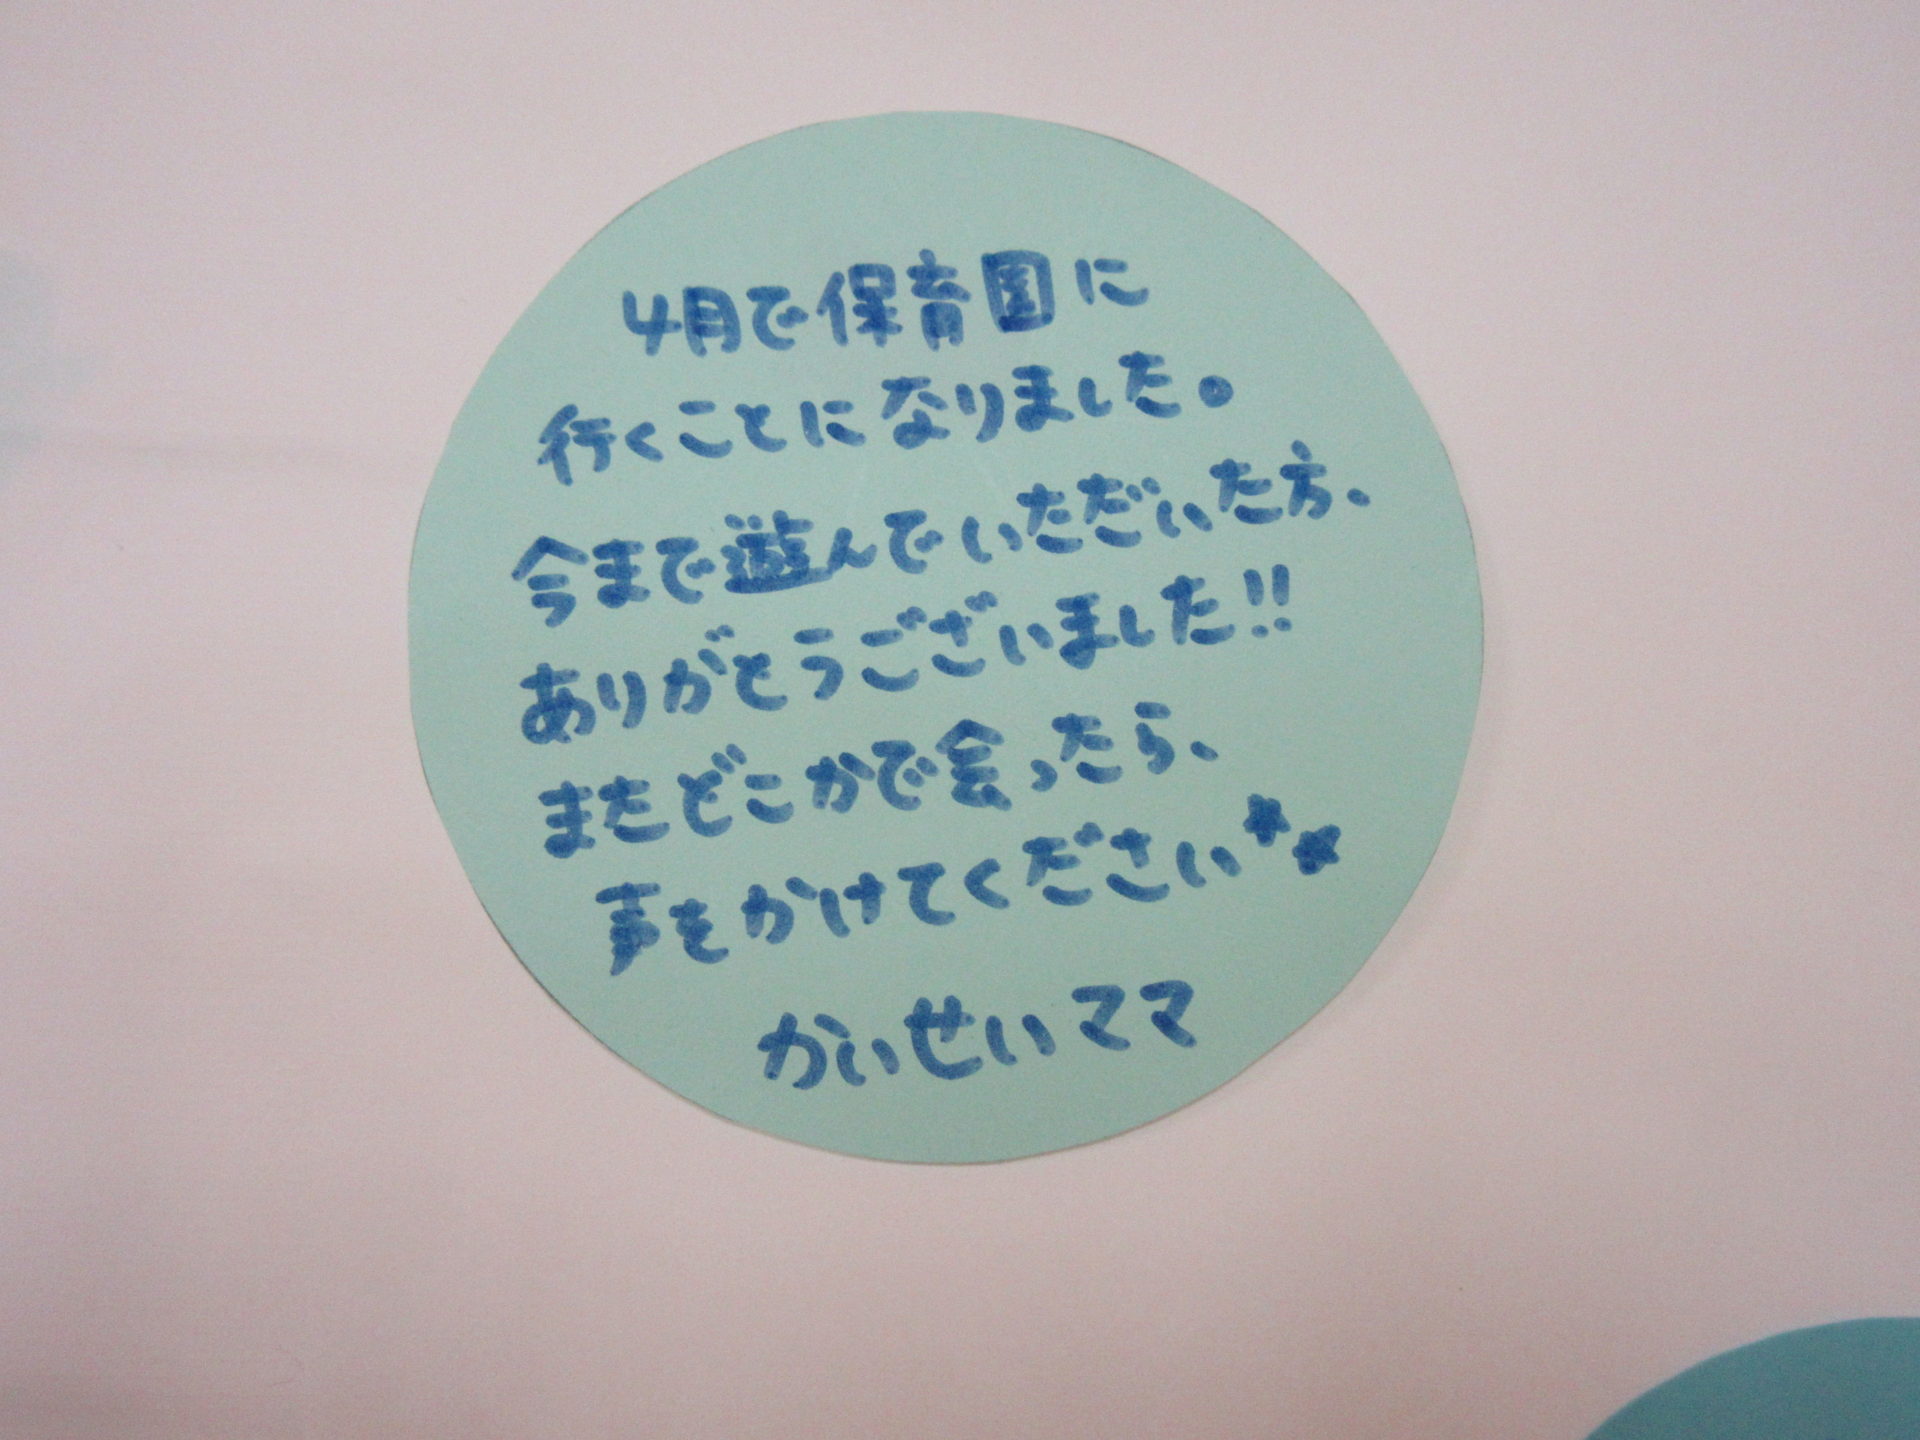 4月で保育園に
行くことになりました。
今まで遊んでいただいた方、
ありがとうございました!!
またどこかで会ったら、
声をかけてください★★
かいせいママ